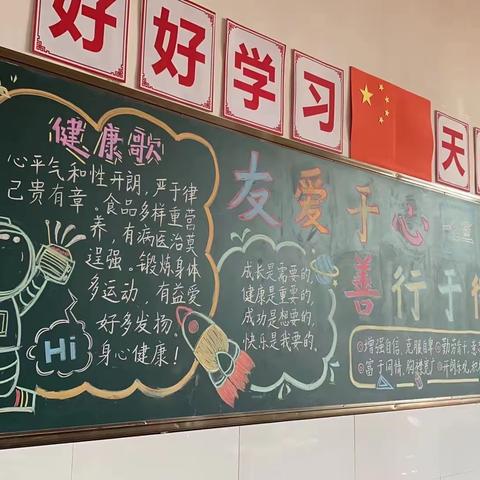 好
好
学
习
天
健康歌
心平气和性开朗，严于律
己贵有章。食品多样重营
养，有病医治莫
逞强。锻炼身体
多运动，有益爱
好多发扬。
身心健康！
Hi
友爱于心
善行于行
成长是需要的，
健康是重要的，
成功是想要的，
快乐是我要的。
增强自信，克服自卑
勤劳肯干，
富于同情，胸襟宽广
开朗乐观，